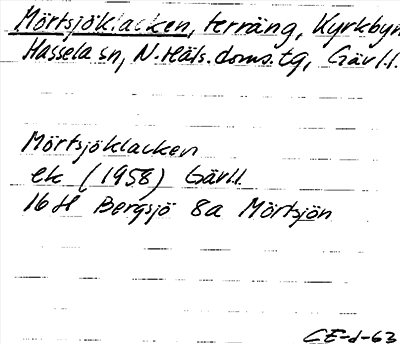 Mörtsjöklacken, terräng, Kyrkbyn
Hassela sn, N. Häls. doms. tg, Gävl.l.
Mörtsjöklacken
ek (1958) Gävl.l.
16H Bergsjö 8a Mörtsjön
CE-d-63